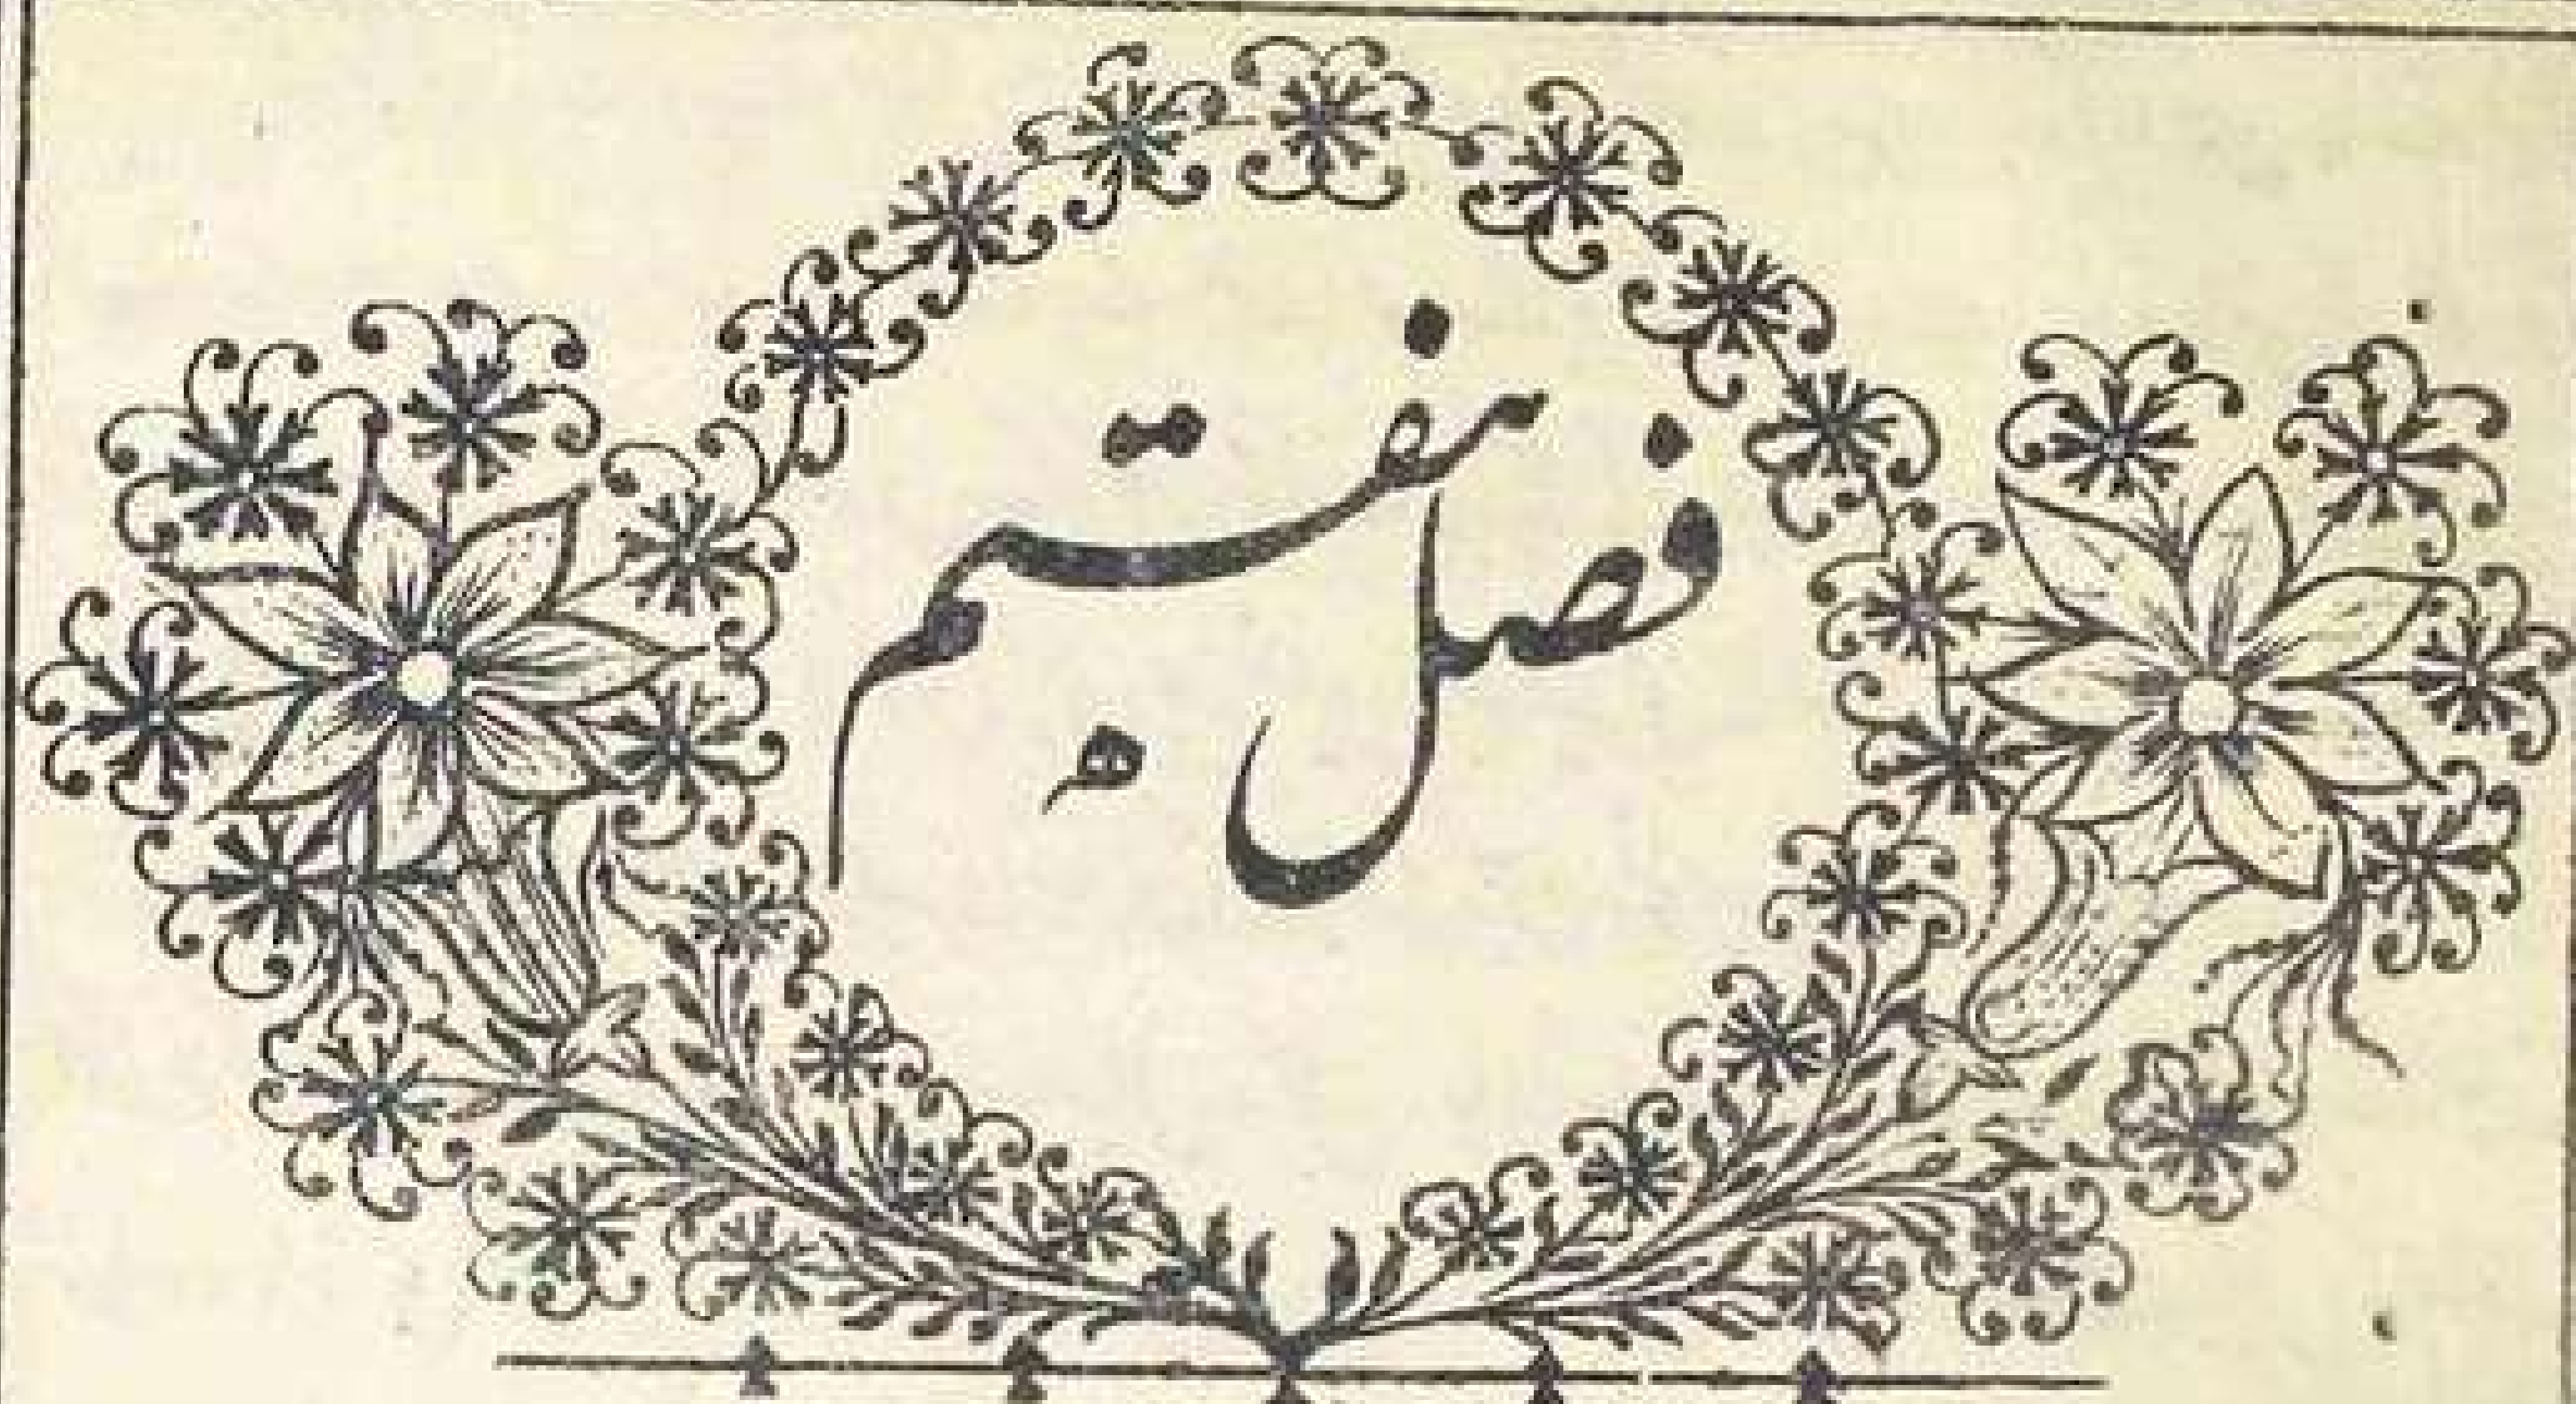 فصل ہفتم